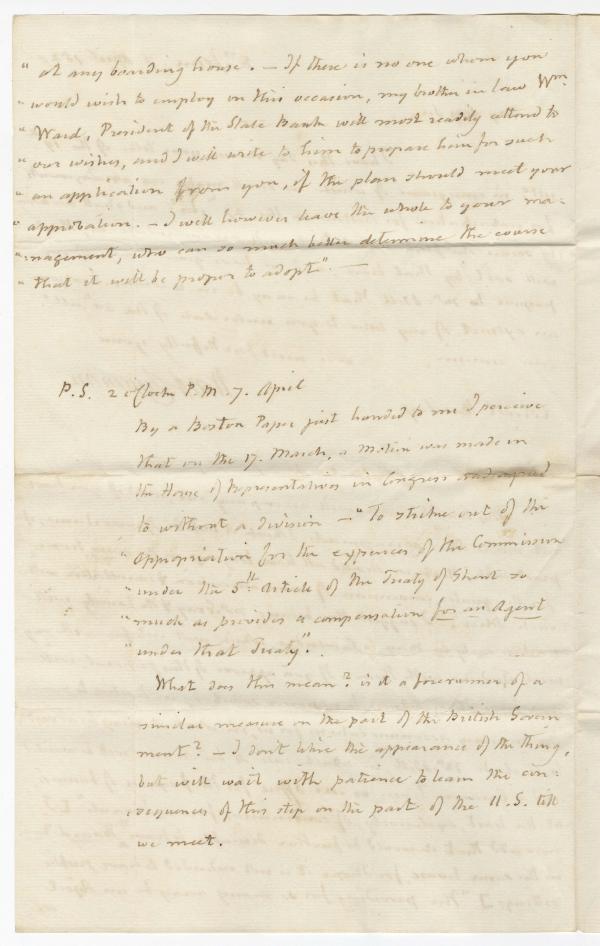 " at any boarding house. — If there is no one whom you
" would wish to employ on this occasion, my brother in law Wm.
" Ward, President of the State Bank will most readily attend to
" our wishes, and I will write to him to prepare him for such
" an application from you, if the plan should meet your
" approbation. — I will however leave the whole to your ma:
" nagement, who can so much better determine the course
" that it will be proper to adopt". —
P.S. 2 o'Clock P.M. 7. April
By a Boston Paper just handed to me I perceive
that on the 17. March, a Motion was made in
the House of Representatives in Congress and agreed
to without a division — "To strike out of the
" Appropriation for the expences of the Commission
" under the 5th. Article of the Treaty of Ghent so
" much as provides a compensation for an Agent
" under that Treaty".
What does this mean? is it a forerunner of a
similar measure on the part of the British Govern
ment? — I don't like the appearance of the thing,
but will wait with patience to learn the con:
sequences of this step on the part of the U.S. till
we meet.